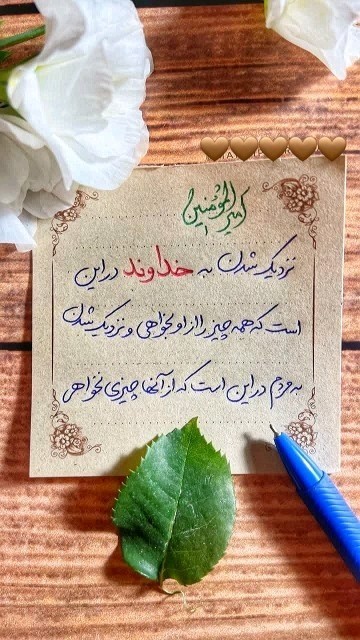 امیرالمؤمنین
نزدیک شدن به خداوند در این
است که همه چیز را از او بخواهی و نزدیک شدن
به مردم در این است که از آنها چیزی نخواهی